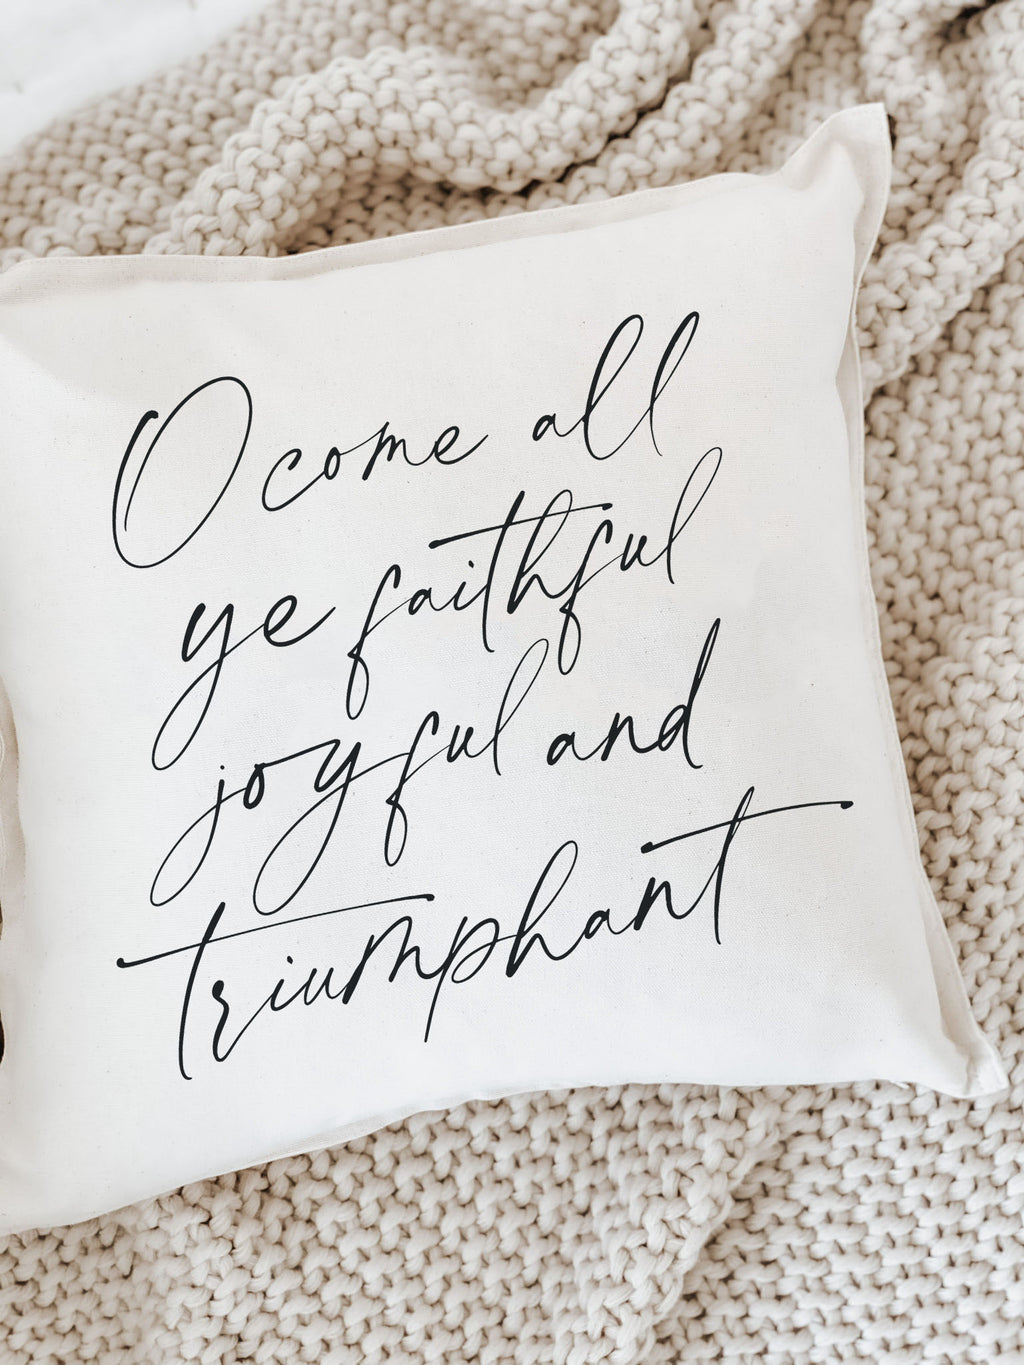 O come all
ye faithful
joyful and
triumphant